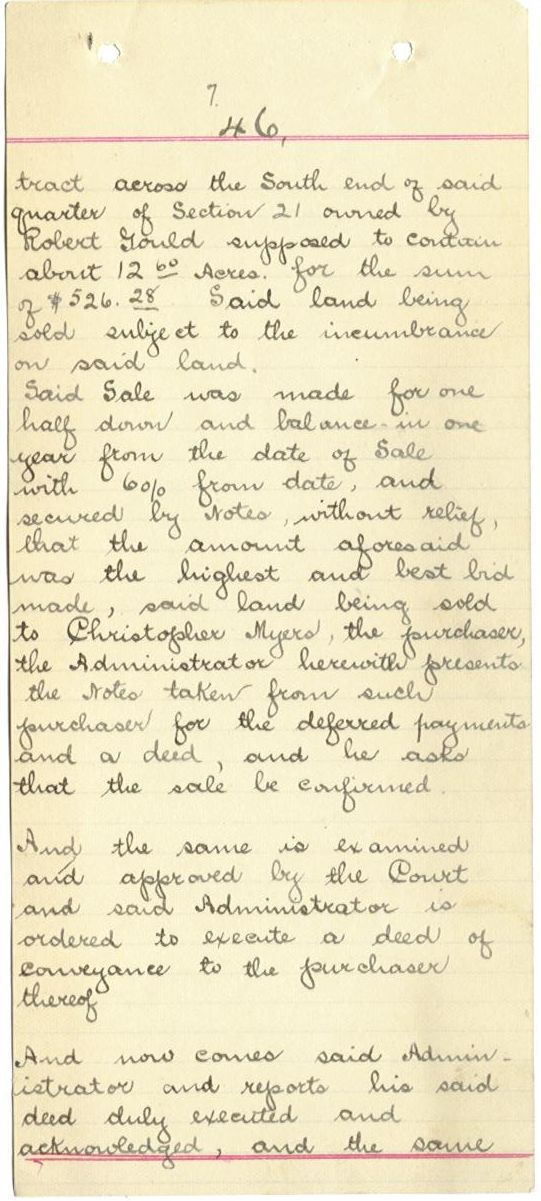 7.
46,
tract across the South end of said
quarter of Section 21 owned by
Robert Gould supposed to contain
about 12 60 Acres. for the sum
of $526.28 Said land being
sold subject to the incumbrance
on said land.
Said Sale was made for one
half down and balance in one
year from the date of Sale
with 6% from date, and
secured by Notes, without relief,
that the amount aforesaid
was the highest and best bid
made, said land being sold
to Christopher Myers, the purchaser,
the Administrator herewith presents
the Notes taken from such
purchaser for the deferred payments
and a deed, and he asks
that the sale be confirmed.
And the same is examined
and approved by the Court
and said Administrator is
ordered to execute a deed of
conveyance to the purchaser
thereof
And now comes said Admin-
istrator and reports his said
deed duly executed and
acknowledged, and the same